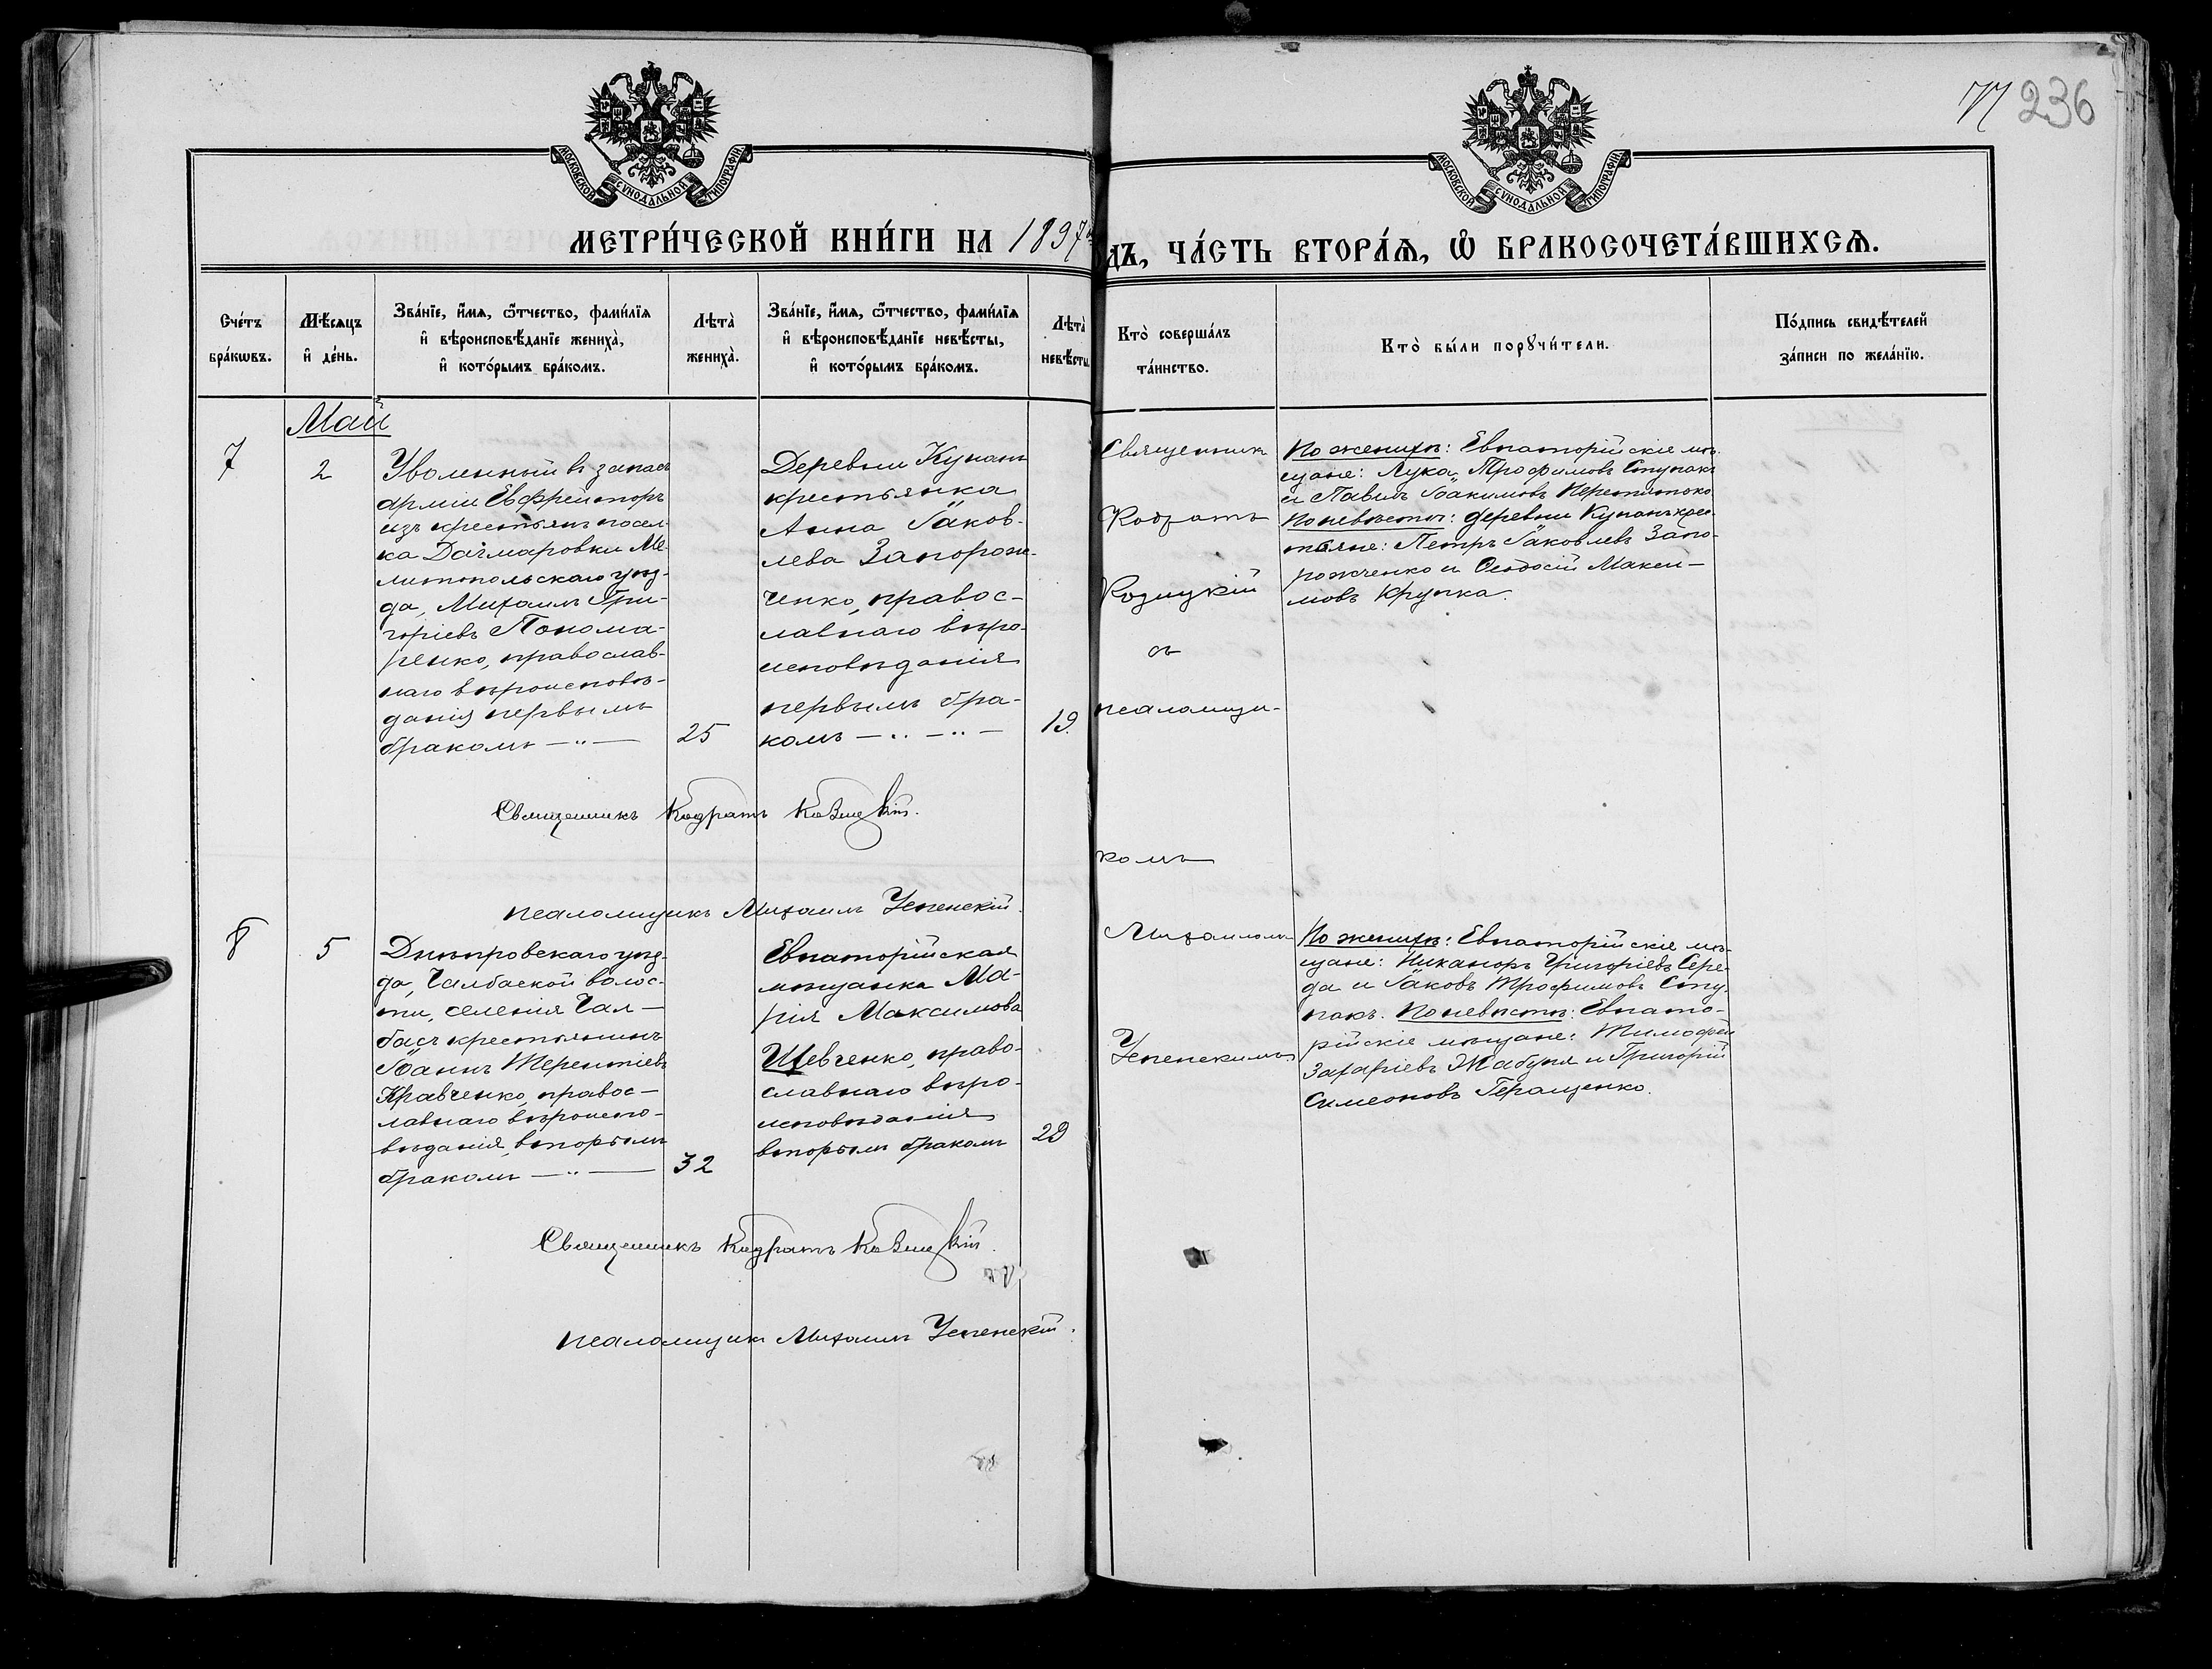 236
МОСКОВСКОЙ СѴНОДАЛЬНОЙ ТИПОГРАФІИ
МОСКОВСКОЙ СѴНОДАЛЬНОЙ ТИПОГРАФІИ
МЕТРИ́ЧЕСКОЙ КНИ́ГИ НА 1897
ДЪ, ЧА́СТЬ ВТОРА́Ѧ, Ѽ БРАКОСОЧЕТА́ВШИХСѦ.
Сче́тъ
бра́кѡвъ.
Мѣ́сѧцъ
и҆ де́нь.
Зва́нїе, и҆́мѧ, ѻ҆́тчество, фами́лїѧ
и҆ вѣроисповѣ́данїе жениха̀,
и҆ кото́рымъ бра́комъ.
Лѣта̀
жениха̀.
Зва́нїе, и҆́мѧ, ѻ҆́тчество, фами́лїѧ
и҆ вѣроисповѣ́данїе невѣ́сты,
и҆ кото́рымъ бра́комъ.
Лѣта̀
невѣ́сты.
Кто̀ соверша́лъ
та́инство.
Кто̀ бы́ли порꙋчи́тели.
По́дпись свидѣ́телей
за́писи по жела́нїю.
Май
7
2
Уволенный въ запасъ
арміи Ефрейторъ
изъ крестьянъ посел-
ка Дачмаровки Ме-
литопольскаго уѣз-
да, Михаилъ Гри-
горіевъ Понома-
ренко, православ-
наго вѣроисповѣ-
данія первымъ
бракомъ — " —
25
Деревни Кунанъ
крестьянка
Анна Іаков-
лева Запорож-
ченко, правос-
лавнаго вѣро-
исповѣданія
первымъ бра-
комъ — " — " —
19.
Священник
Кодратъ
Козицкій
съ
псаломщи-
комъ
Михаиломъ
Успенскимъ
По женихѣ: Евпаторійскіе мѣ-
щане: Лука Трофимовъ Ступакъ
и Павелъ Іоакимовъ Перетятько
По невѣстѣ: деревни Кунанъ крес-
тьяне: Петръ Іаковлевъ Запо-
рожченко и Ѳеодосій Макси-
мовъ Крупка.
Священникъ Кодратъ Козицкій.
псаломщикъ Михаилъ Успенскій.
8
5
Днѣпровскаго уѣз-
да, Чалбаской волос-
ти, селенія Чал-
басъ крестьянинъ
Іоаннъ Терентіевъ
Кравченко, правос-
лавнаго вѣроиспо-
вѣданія, вторымъ
бракомъ — " —
32
Евпаторійская
мѣщанка Ма-
рія Максимова
Шевченко, право-
славнаго вѣро-
исповѣданія
вторымъ бракомъ
29
По женихѣ: Евпаторійскіе мѣ-
щане: Никаноръ Григоріевъ Сере-
да и Іаковъ Трофимовъ Сту-
пакъ. По невѣстѣ: Евпато-
рійскіе мѣщане: Тимофей
Захаріевъ Жабуня и Григорій
Симеоновъ Геращенко.
Священникъ Кодратъ Козицкій.
псаломщикъ Михаилъ Успенскій.